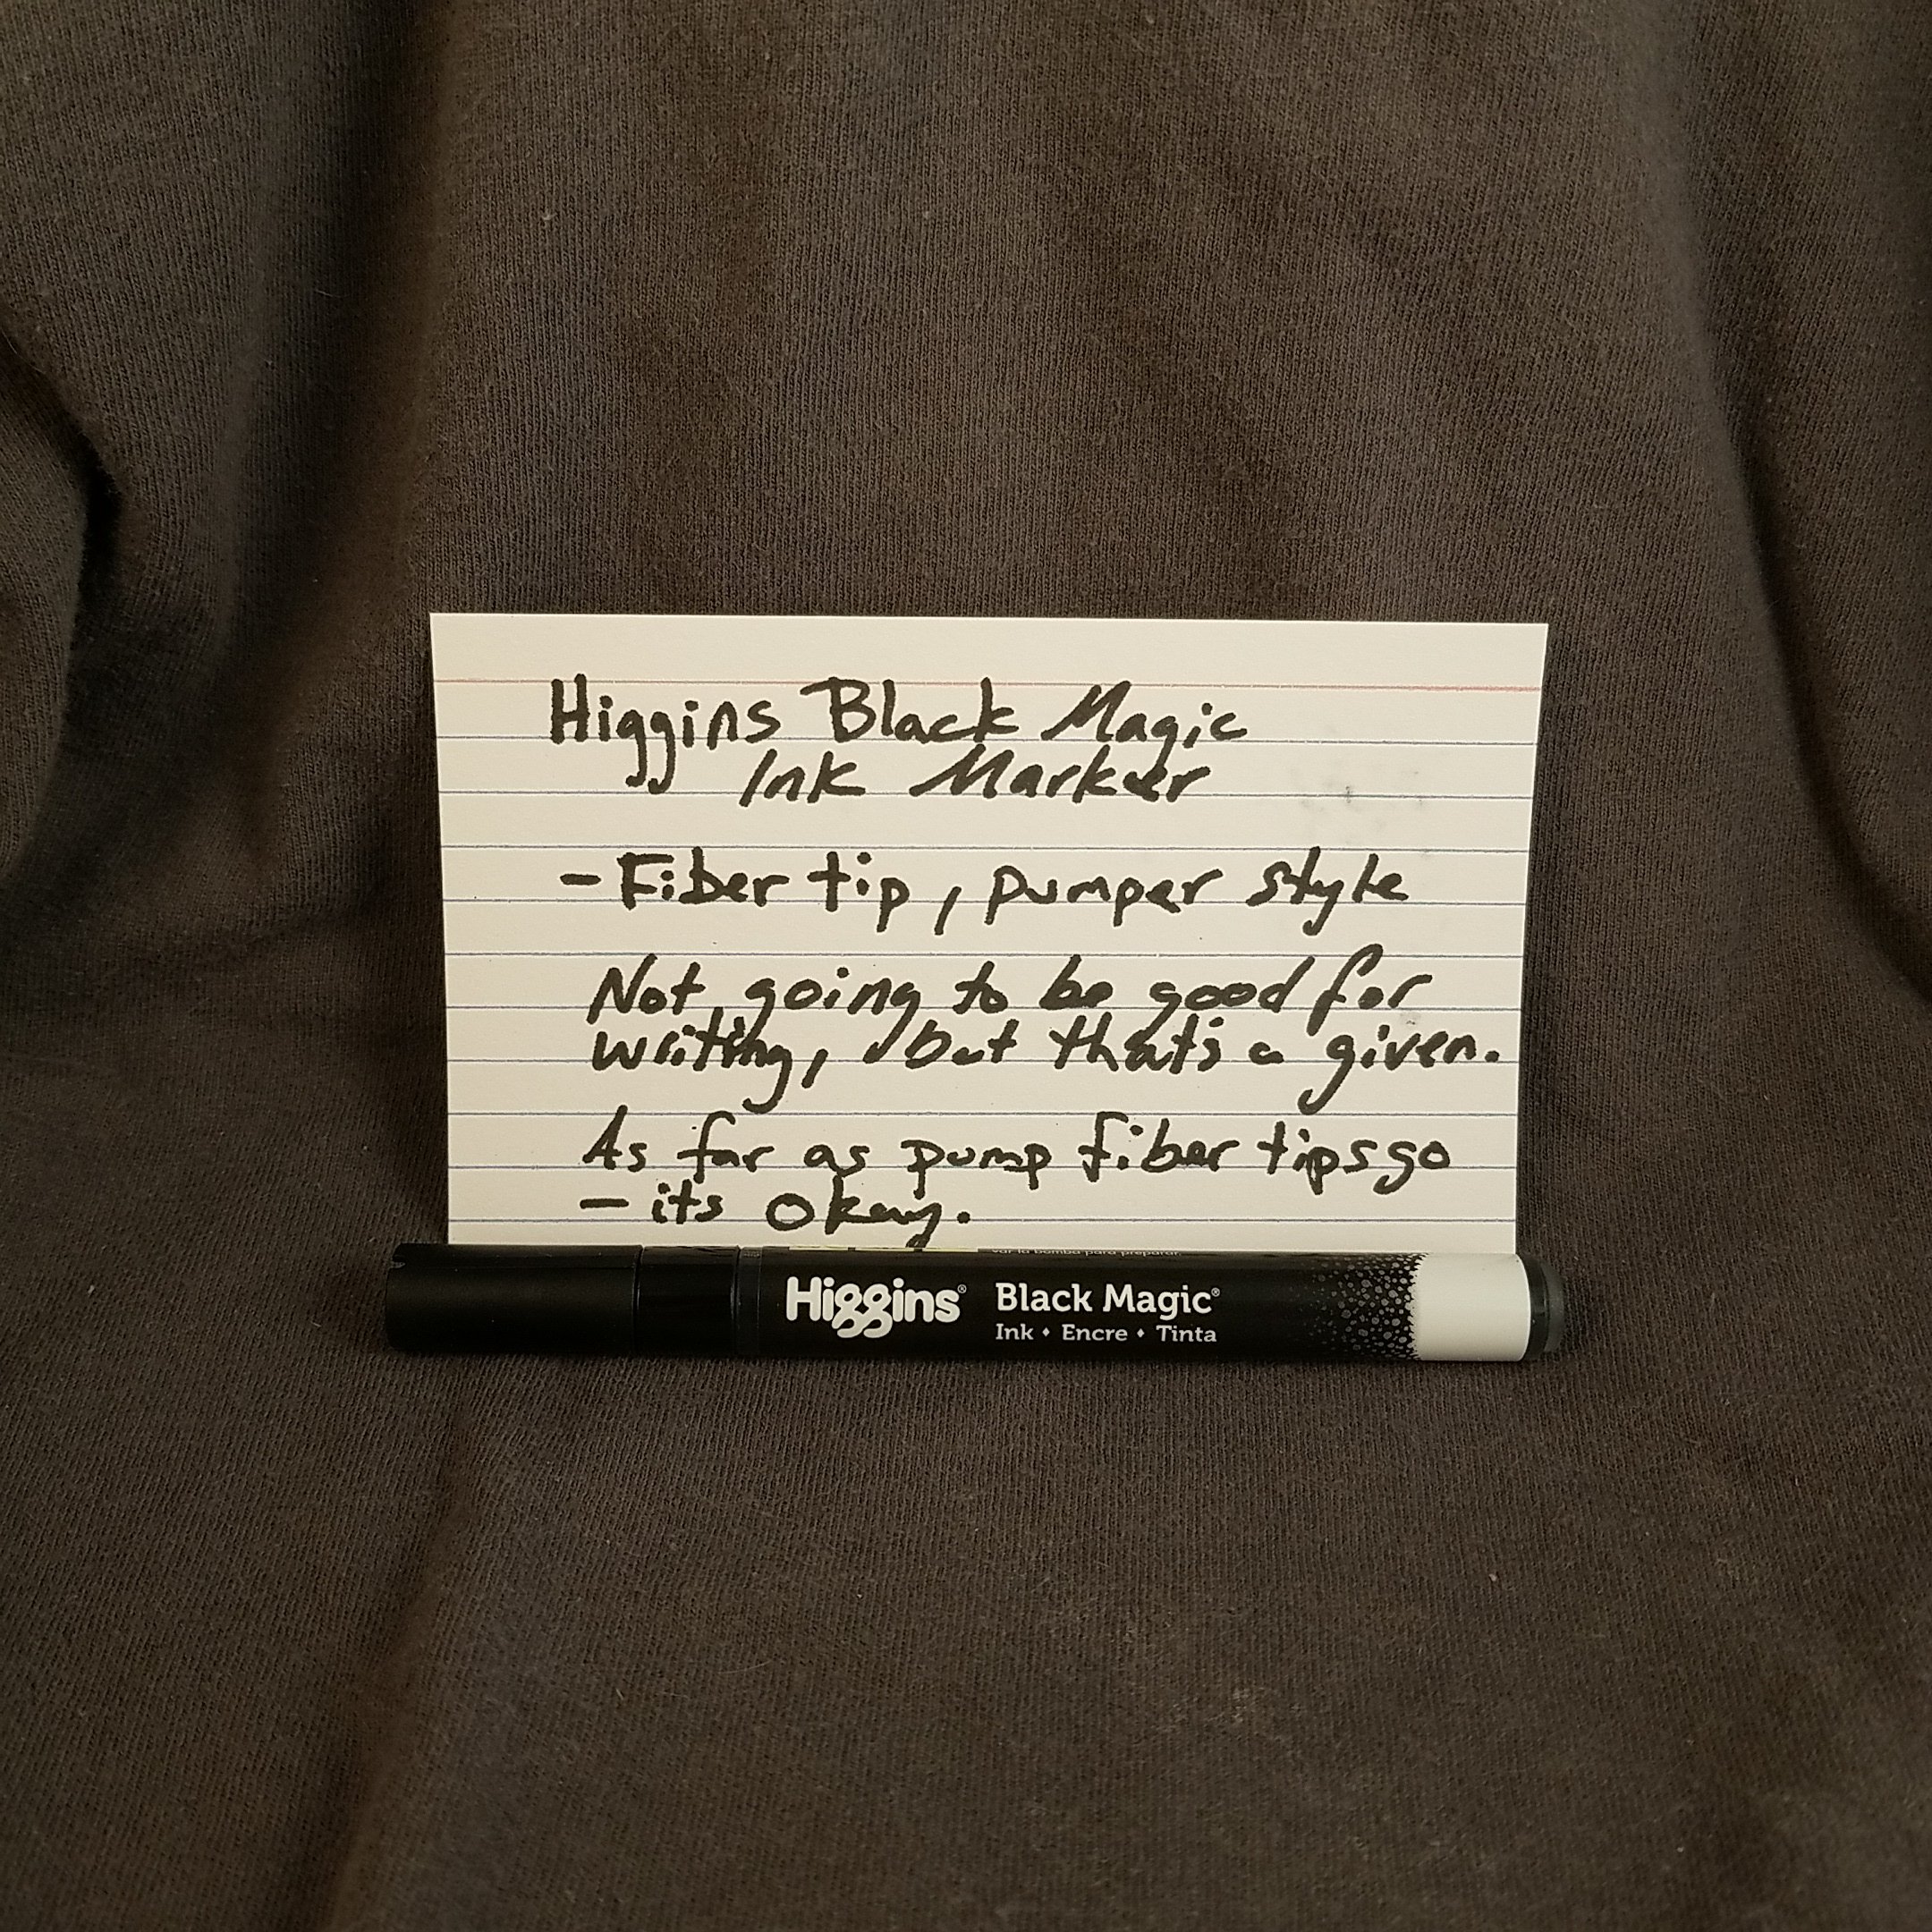 Higgins Black Magic
Ink Marker
- Fiber tip, pumper style
Not going to be good for
writing, but thats a given.
As far as pump fiber tips go
- its okay.
var la bomba para preparar.
Higgins® Black Magic®
Ink • Encre • Tinta